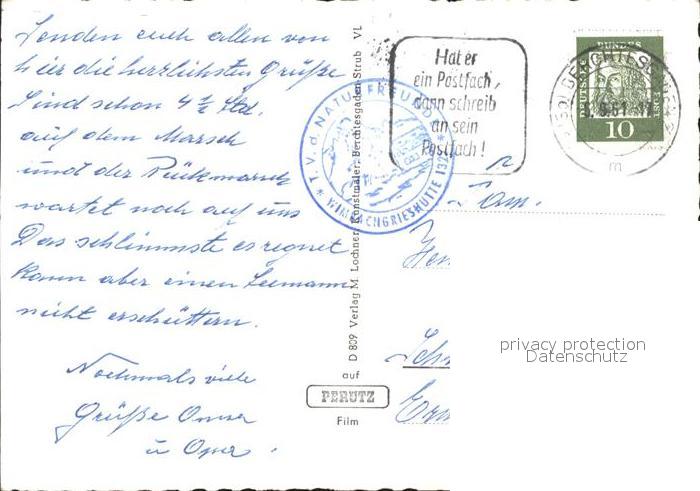 Senden euch allen von
hier die herzlichsten Grüße
Sind schon 4 ½ Std.
auf dem Marsch
und der Rückmarsch
wartet noch auf uns
Das schlimmste es regnet
kann aber einen Seemann
nicht erschüttern.
Nochmals viele
Grüße Oma
u Opa.
D 809 Verlag M. Lochner, Kunstmaler, Berchtesgaden-Strub VL
auf
PERUTZ
Film
T.V.d. NATURFREUNDE
WIMBACHGRIESHÜTTE 132
Hat er
ein Postfach,
dann schreib
an sein
Postfach!
BERCHTESGADEN
DEUTSCHE BUNDESPOST
10
Fam.
privacy protection
Datenschutz